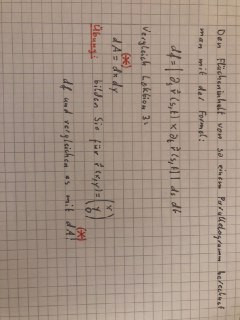 Den Flächeninhalt von so einem Parallelogramm berechnet
man mit der Formel:
df = | ∂ₛ r⃗(s,t) × ∂ₜ r⃗(s,t) | ds dt
Vergleich Lektion 3:
(*)
dA = dxdy
Übung:
bilden Sie für r⃗(x,y) = (x y 0)
df und vergleichen es mit dA! (*)